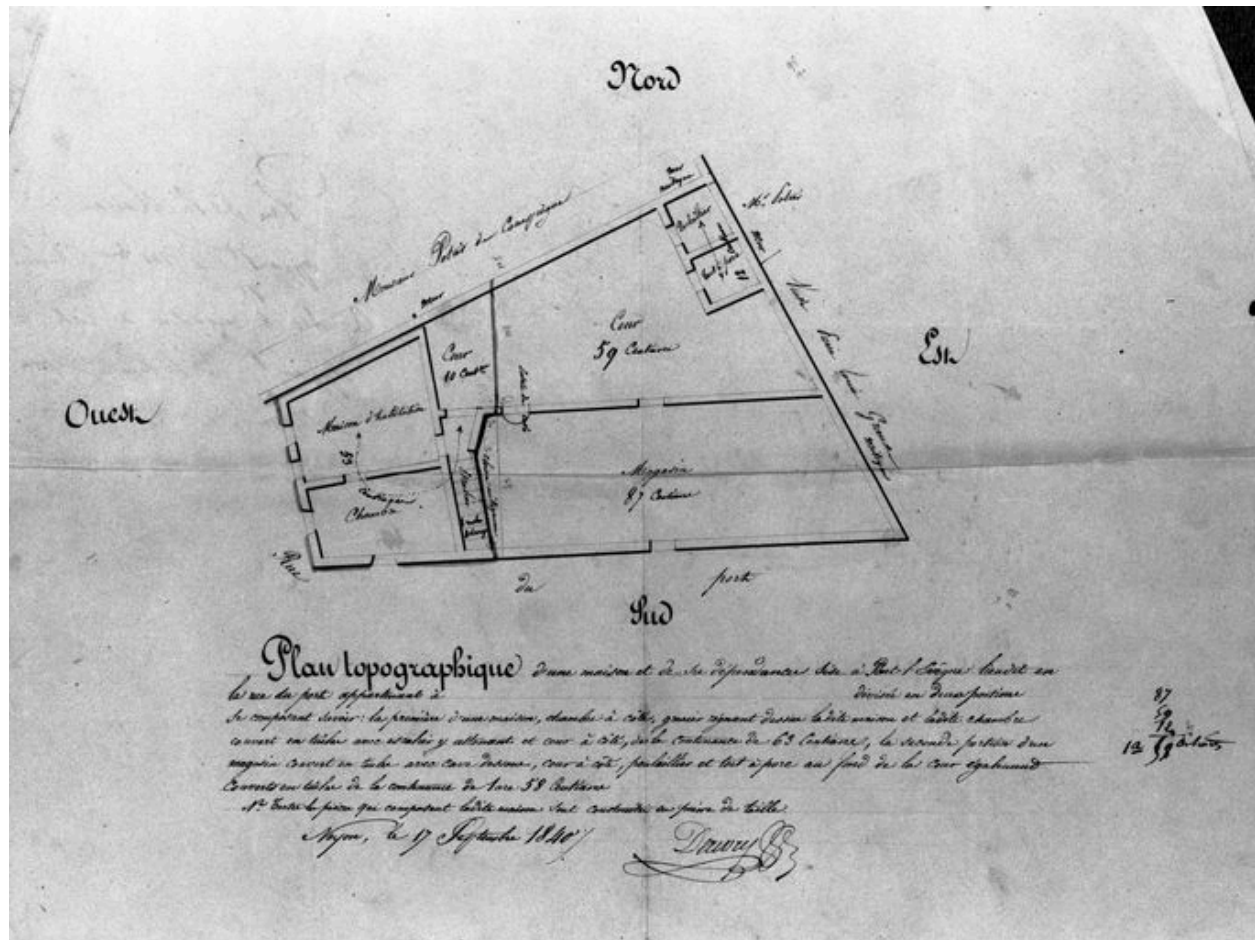 Nord
Mur
mitoyen
Monsieur Potais de Compiègne
Poulailler
Mur
Mur
Cour
59 Centiares
Est
Cour
10 Cent.
Ouest
Maison d'habitation
53
Magasin
87 Centiares
Chambre
Escalier
Rue
du
port
Sud
Plan topographique d'une maison et de ses dépendances sise à Pont l'Evêque lieudit en
la rue du port appartenant à divisé en deux portions
se composant savoir: la première d'une maison, chambre à côté, grenier régnant dessus ladite maison et ladite chambre
couvert en tuiles avec escalier y attenant et cour à côté, de la contenance de 63 Centiares, la seconde portion d'un
magasin couvert en tuiles avec cave dessous, cour à côté, poulailler et toit à porc au fond de la cour également
Couverts en tuiles de la contenance de 1 are 58 Centiares
Nta Toutes les pièces qui composent ladite maison sont construites en pierre de taille.
87
59
12
Noyon, le 17 Septembre 1840